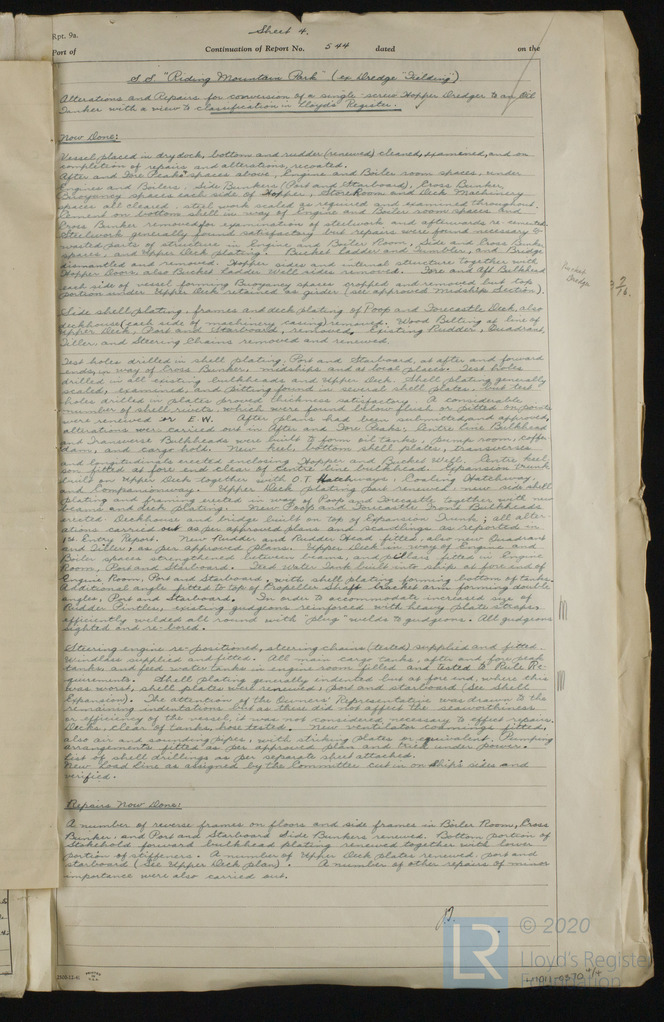 Rpt. 9a.
Sheet 4.
Port of
Continuation of Report No. 544 dated on the
S.S. "Riding Mountain Park" (ex Dredge "Fielding")
Alterations and Repairs for conversion of a single screw Hopper Dredger to an Oil
Tanker with a view to classification in Lloyd's Register.
Now Done:
Vessel placed in drydock, bottom and rudder (renewed) cleaned, examined, and on
completion of repairs and alterations, recoated.
After and Fore Peaks, spaces above, Engine and Boiler room spaces, under
Engines and Boilers, Side Bunkers (Port and Starboard), Cross Bunker,
Buoyancy spaces each side of Hopper, Store Room and Deck Machinery
spaces all cleared, steel work scaled as required and examined throughout.
Cement on bottom shell in way of Engine and Boiler room spaces and
Cross Bunker removed for examination of steelwork and afterwards re-cemented.
Steelwork generally found satisfactory but repairs were found necessary to
wasted parts of structure in Engine and Boiler Room, Side and Cross Bunker
spaces, and Upper Deck plating. Bucket Ladder and Tumbler, and Bridge
dismantled and removed. Hopper sides and internal structure together with
Hopper Doors, also Bucket Ladder Well sides removed. Fore and Aft Bulkhead
each side of vessel forming Buoyancy spaces cropped and removed but top
portion under Upper Deck retained as girder (see approved Midship Section).
Bucket
Dredge
Side shell plating, frames and deck plating of Poop and Forecastle Deck, also
deckhouse (each side of machinery casing) removed. Wood Belting at line of
Upper Deck, Port and Starboard, removed, Existing Rudder, Quadrant,
Tiller and Steering Chains removed and renewed.
Test holes drilled in shell plating, Port and Starboard, at after and forward
ends, in way of Cross Bunker, midships and at local places. Test holes
drilled in all existing bulkheads and Upper Deck. Shell plating generally
scaled, examined, and pitting found in several shell plates but test
holes drilled in plates proved thickness satisfactory. A considerable
number of shell rivets, which were found below flush or pitted on points
were renewed or E.W. After plans had been submitted and approved,
alterations were carried out in After and Fore Peaks; Centre line Bulkhead
and Transverse Bulkheads were built to form oil tanks, pump room, coffer
dam, and cargo hold. New keel, bottom shell plates, transverses
and longitudinals erected enclosing Hopper and Bucket Well. Centre keel
son fitted at fore end clear of Centre line bulkhead. Expansion trunk
built on Upper Deck together with O.T Hatchways, Coaling Hatchway,
and Companionway. Upper Deck plating part renewed, new side shell
plating and framing erected in way of Poop and Forecastle together with new
beams and deck plating. New Poop and Forecastle Front Bulkheads
erected. Deckhouse and bridge built on top of Expansion Trunk; all alter-
ations carried out as per approved plans and scantlings as reported in
1st Entry Report. New Rudder and Rudder Head fitted, also new Quadrant
and Tiller, as per approved plans. Upper Deck in way of Engine and
Boiler spaces strengthened between beams, and pillars fitted in Engine
Room, Port and Starboard. Feed Water Tank built into ship at fore end of
Engine Room, Port and Starboard, with shell plating forming bottom of tanks.
Additional angle fitted to top of Propeller Shaft bracket arm forming double
angles, Port and Starboard. In order to accommodate increased size of
Rudder Pintles, existing gudgeons reinforced with heavy plate straps,
efficiently welded all round with "plug" welds to gudgeons. All gudgeons
sighted and re-bored.
Steering engine re-positioned, steering chains (tested) supplied and fitted.
Windlass supplied and fitted. All main cargo tanks, after and fore peak
tanks, and feed water tanks in engine room filled and tested to Rule Re-
quirements. Shell plating generally indented but at fore end, where this
was worst, shell plates were renewed, port and starboard (See Shell
Expansion). The attention of the Owners' Representative was drawn to the
remaining indentations but as these did not affect the seaworthiness
or efficiency of the vessel, it was not considered necessary to effect repairs.
Decks, clear of tanks, hose tested. New ventilator coamings fitted,
also air and sounding pipes, with striking plates or equivalent. Pumping
arrangements fitted as per approved plan and tried under power.
List of shell drillings as per separate sheet attached.
New Load Line as assigned by the Committee cut in on ship's sides and
verified.
Repairs Now Done:
A number of reverse frames on floors and side frames in Boiler Room, Cross
Bunker, and Port and Starboard Side Bunkers renewed. Bottom portion of
Stokehold forward bulkhead plating renewed together with lower
portion of stiffeners. A number of Upper Deck plates renewed, port and
starboard (See Upper Deck plan). A number of other repairs of minor
importance were also carried out.
© 2020
LR
Lloyd's Register
Foundation